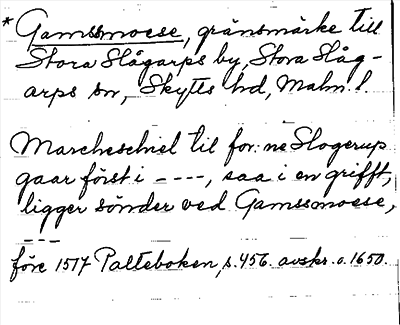 * Gamssmoese, gränsmärke till
Stora Slågarps by, Stora Slåg-
arps sn, Skytts hd, Malm. l.
Marcheschiel til for:ne Slogerup
gaar först i ----, saa i en grifft,
ligger sönder ved Gamssmoese,
---
före 1517 Palteboken, s. 456. avskr. o. 1650.